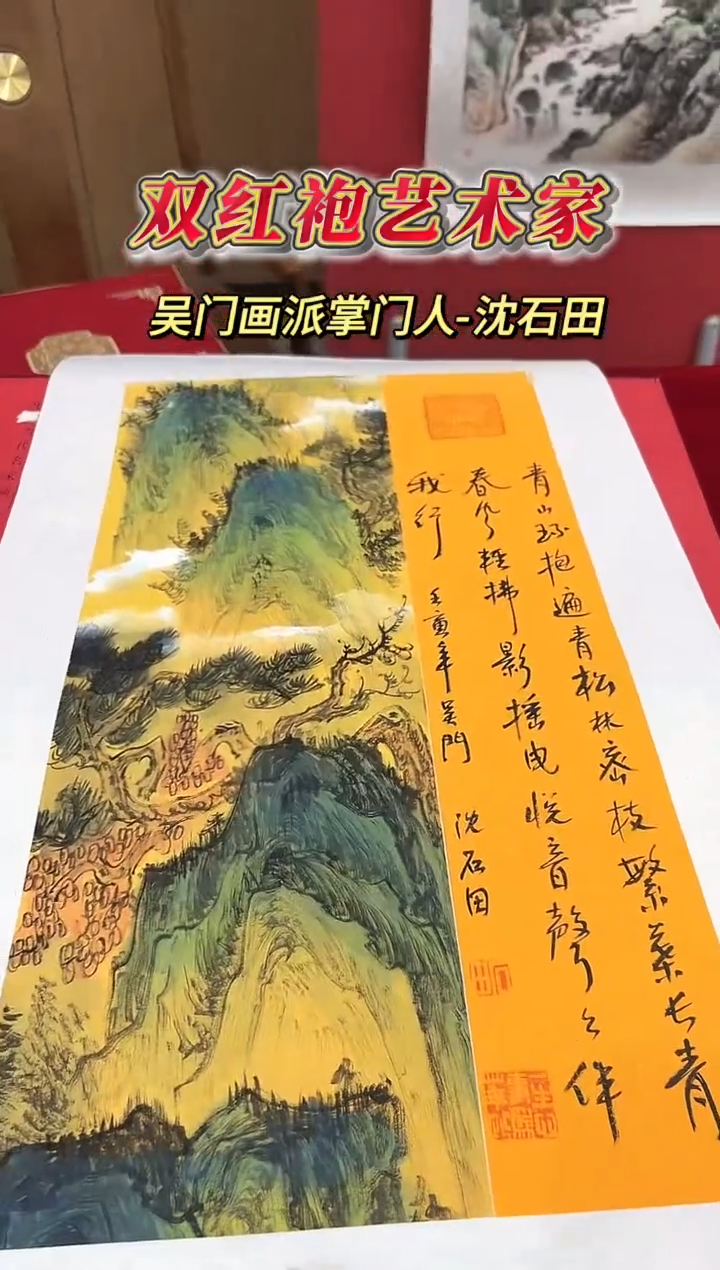 双红袍艺术家
吴门画派掌门人-沈石田
青山环抱遍青松林密枝繁叶长青
春风轻拂影摇曳悦音声声伴
我行
壬寅年吴門 沈石田